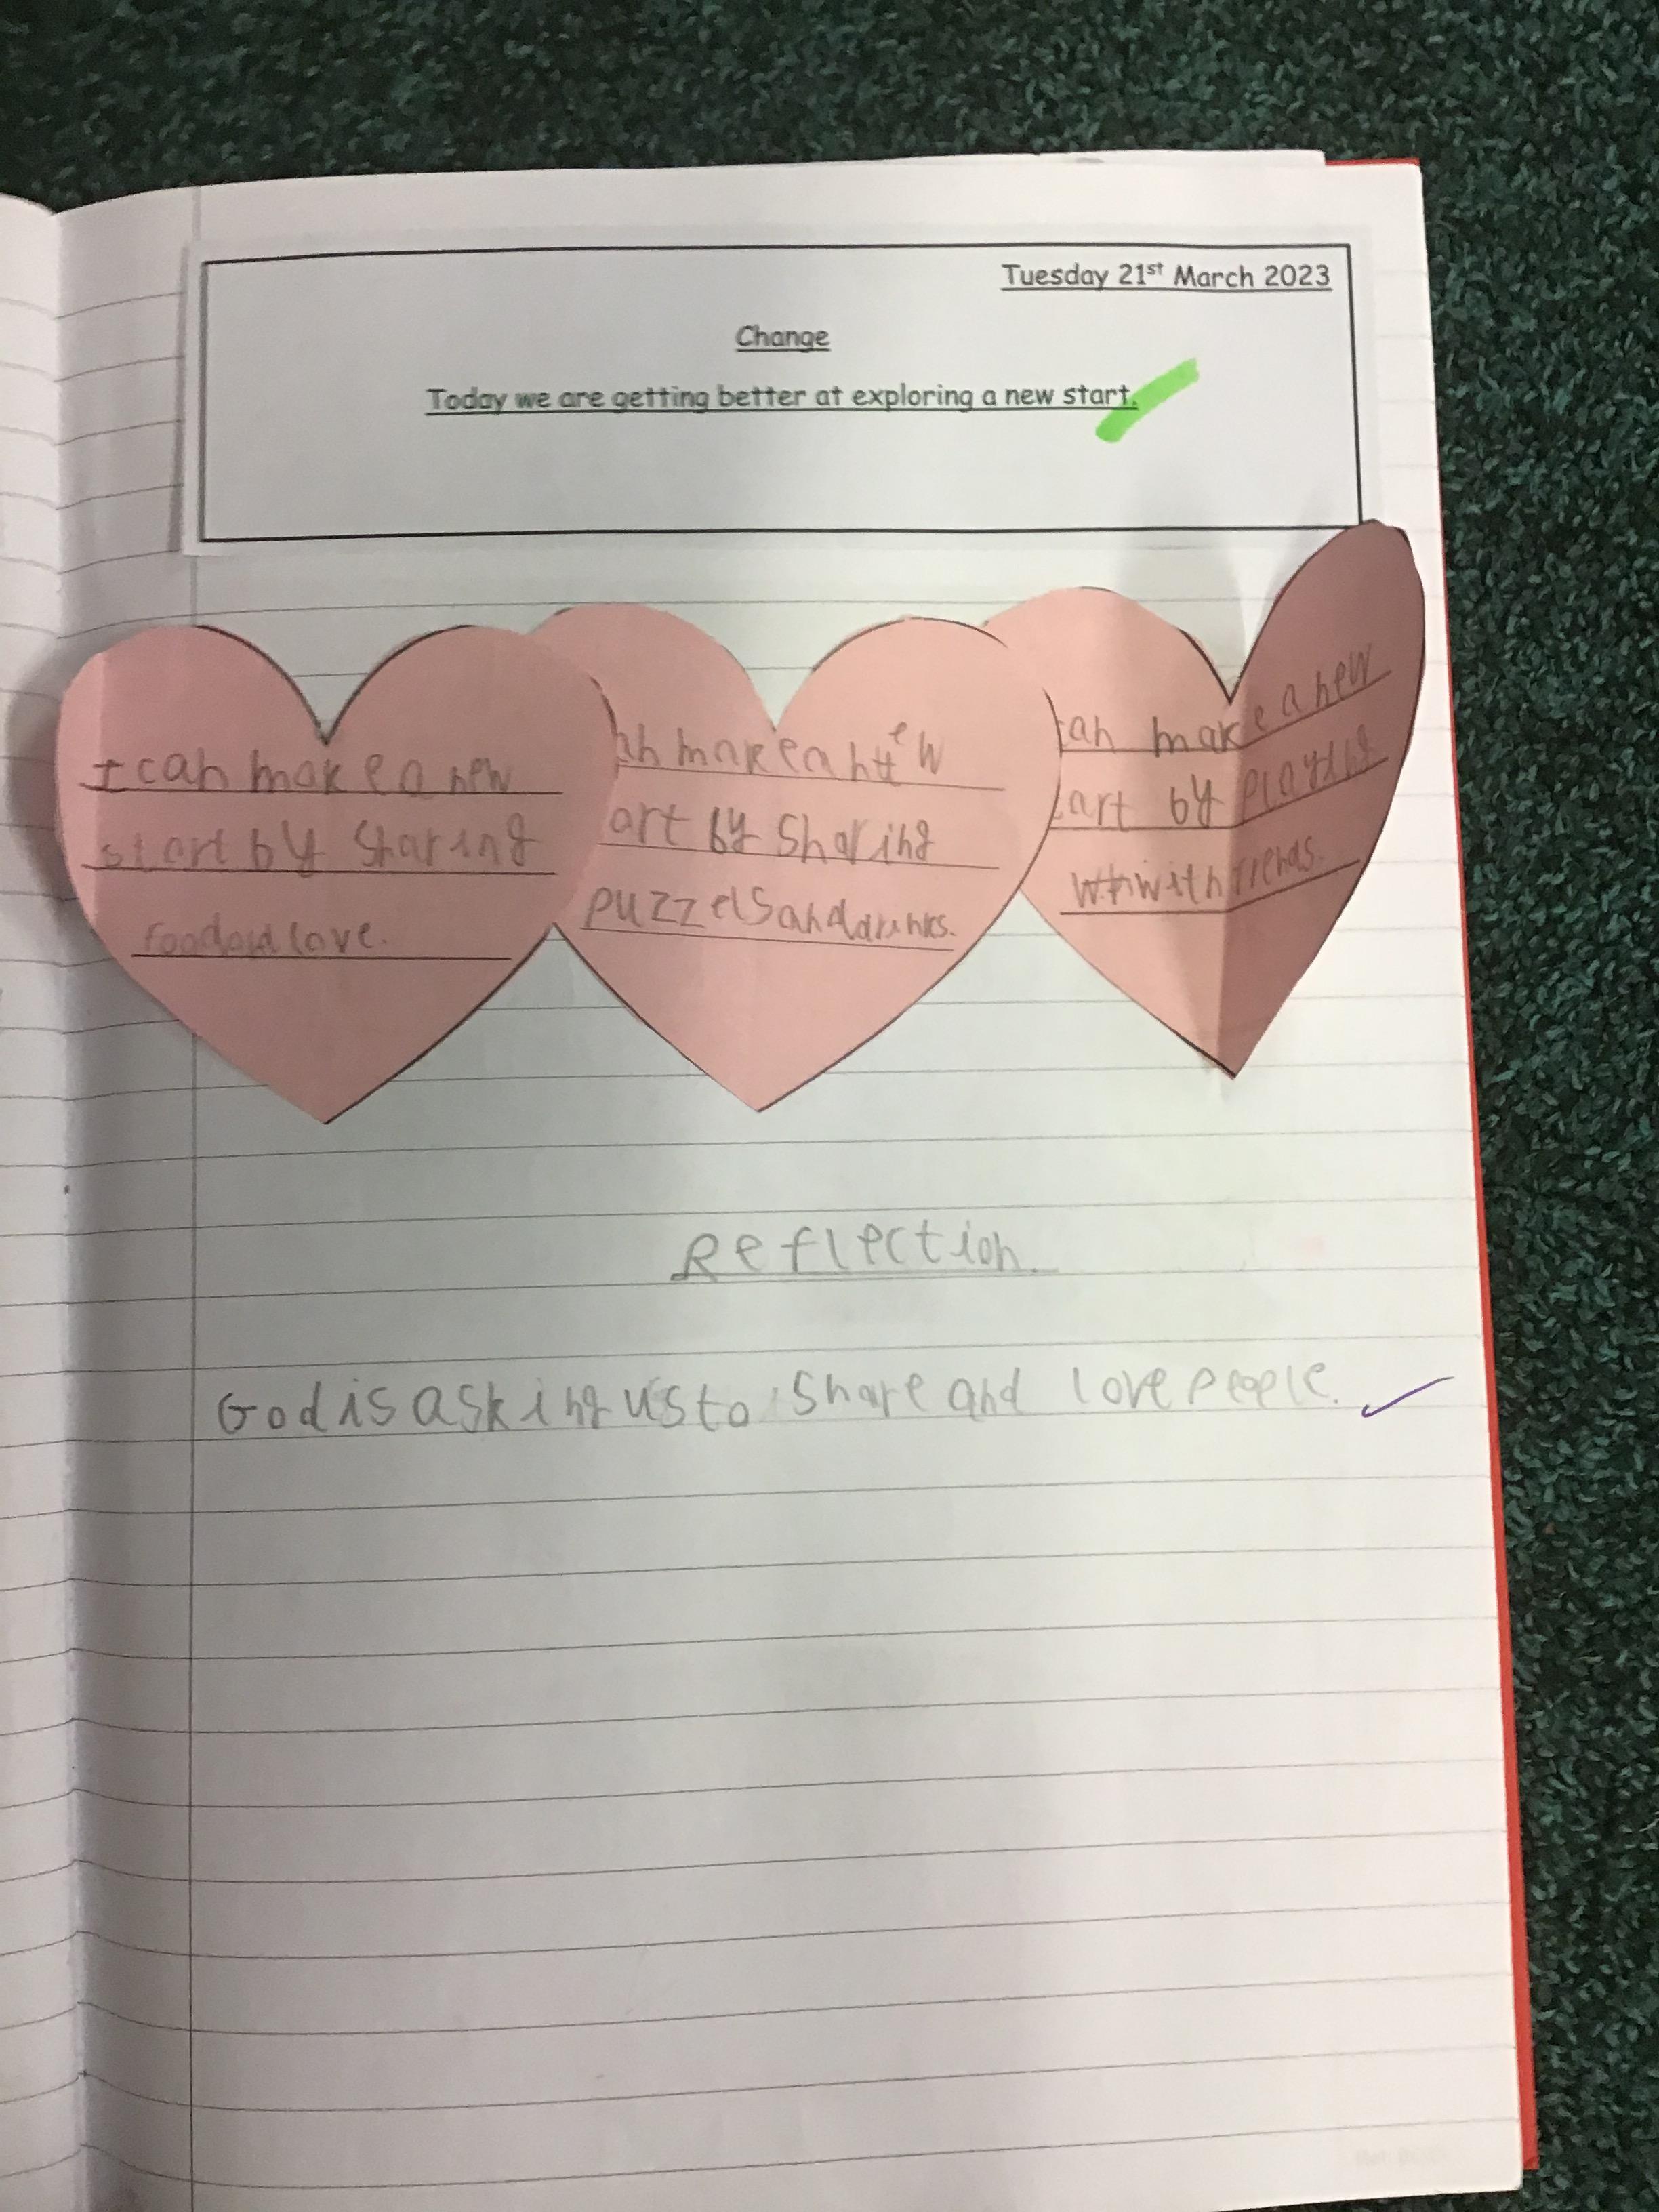 Tuesday 21st March 2023
Change
Today we are getting better at exploring a new start.
I can make a new
start by Sharing
food and love.
an make a new
art by Sharing
puzzels and drinks.
can make a new
art by playing
with friends.
Reflection
God is asking us to Share and love people.